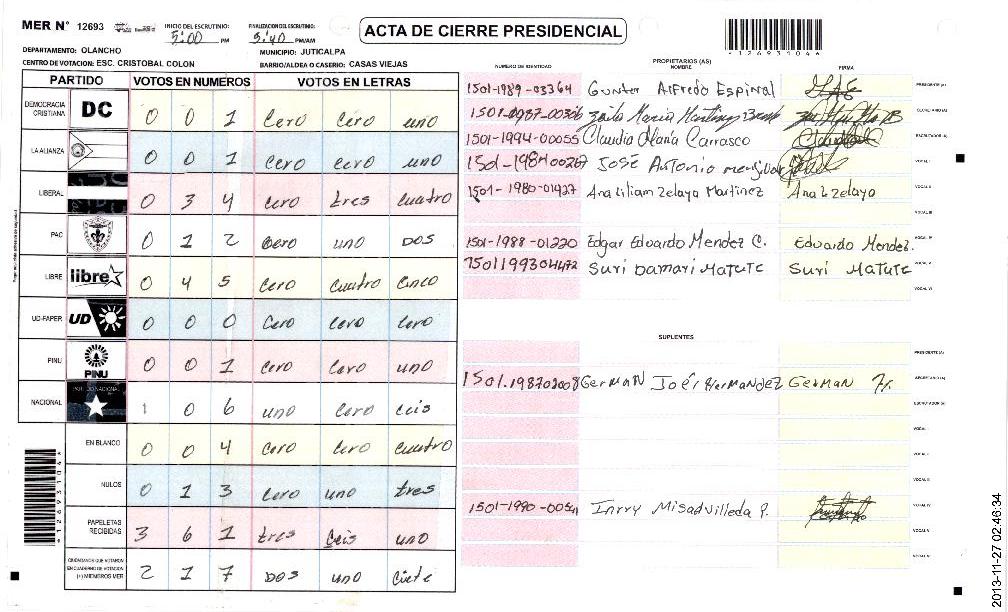 MER N° 12693
INICIO DEL ESCRUTINIO: 5:00 PM
FINALIZACION DEL ESCRUTINIO: 5:40 PM/AM
ACTA DE CIERRE PRESIDENCIAL
*12693104*
DEPARTAMENTO: OLANCHO
MUNICIPIO: JUTICALPA
CENTRO DE VOTACION: ESC. CRISTOBAL COLON
BARRIO/ALDEA O CASERIO: CASAS VIEJAS
PARTIDO VOTOS EN NUMEROS VOTOS EN LETRAS
DEMOCRACIA CRISTIANA DC 0 0 1 Cero Cero uno
LA ALIANZA 0 0 1 Cero Cero uno
LIBERAL 0 3 4 Cero tres cuatro
PAC 0 1 2 Cero uno DOS
LIBRE libre 0 4 5 Cero cuatro cinco
UD-FAPER UD 0 0 0 Cero Cero Cero
PINU PINU 0 0 1 Cero Cero uno
NACIONAL 1 0 6 uno Cero Ceis
EN BLANCO 0 0 4 Cero Cero cuatro
NULOS 0 1 3 Cero uno tres
PAPELETAS RECIBIDAS 3 6 1 tres Ceis uno
CIUDADANOS QUE VOTARON
EN CUADERNO DE VOTACION
(+) MIEMBROS MER 2 1 7 DOS uno Ciete
*12693104*
PROPIETARIOS (AS)
NUMERO DE IDENTIDAD NOMBRE FIRMA
1501-1989-03364 Gunter Alfredo Espinal PRESIDENTE (A)
1501-0987-00306 Maria Martinez SECRETARIO (A)
1501-1994-00055 Claudia Maria Carrasco ESCRUTADOR (A)
1501-1984 00267 José Antonio VOCAL I
1501-1980-01927 Ana Liliam Zelaya Martinez Ana L Zelaya VOCAL II
VOCAL III
1501-1988-01220 Edgar Eduardo Mendez C. Eduardo Mendez. VOCAL IV
1501199304472 Suri Damari Matute Suri Matute VOCAL V
VOCAL VI
SUPLENTES
PRESIDENTE (A)
1501.198702008 German Joér Hernandez German SECRETARIO (A)
ESCRUTADOR (A)
VOCAL I
VOCAL II
VOCAL III
1501-1990-00541 Inrry Misadvilleda P. VOCAL IV
VOCAL V
VOCAL VI
2013-11-27 02:46:34